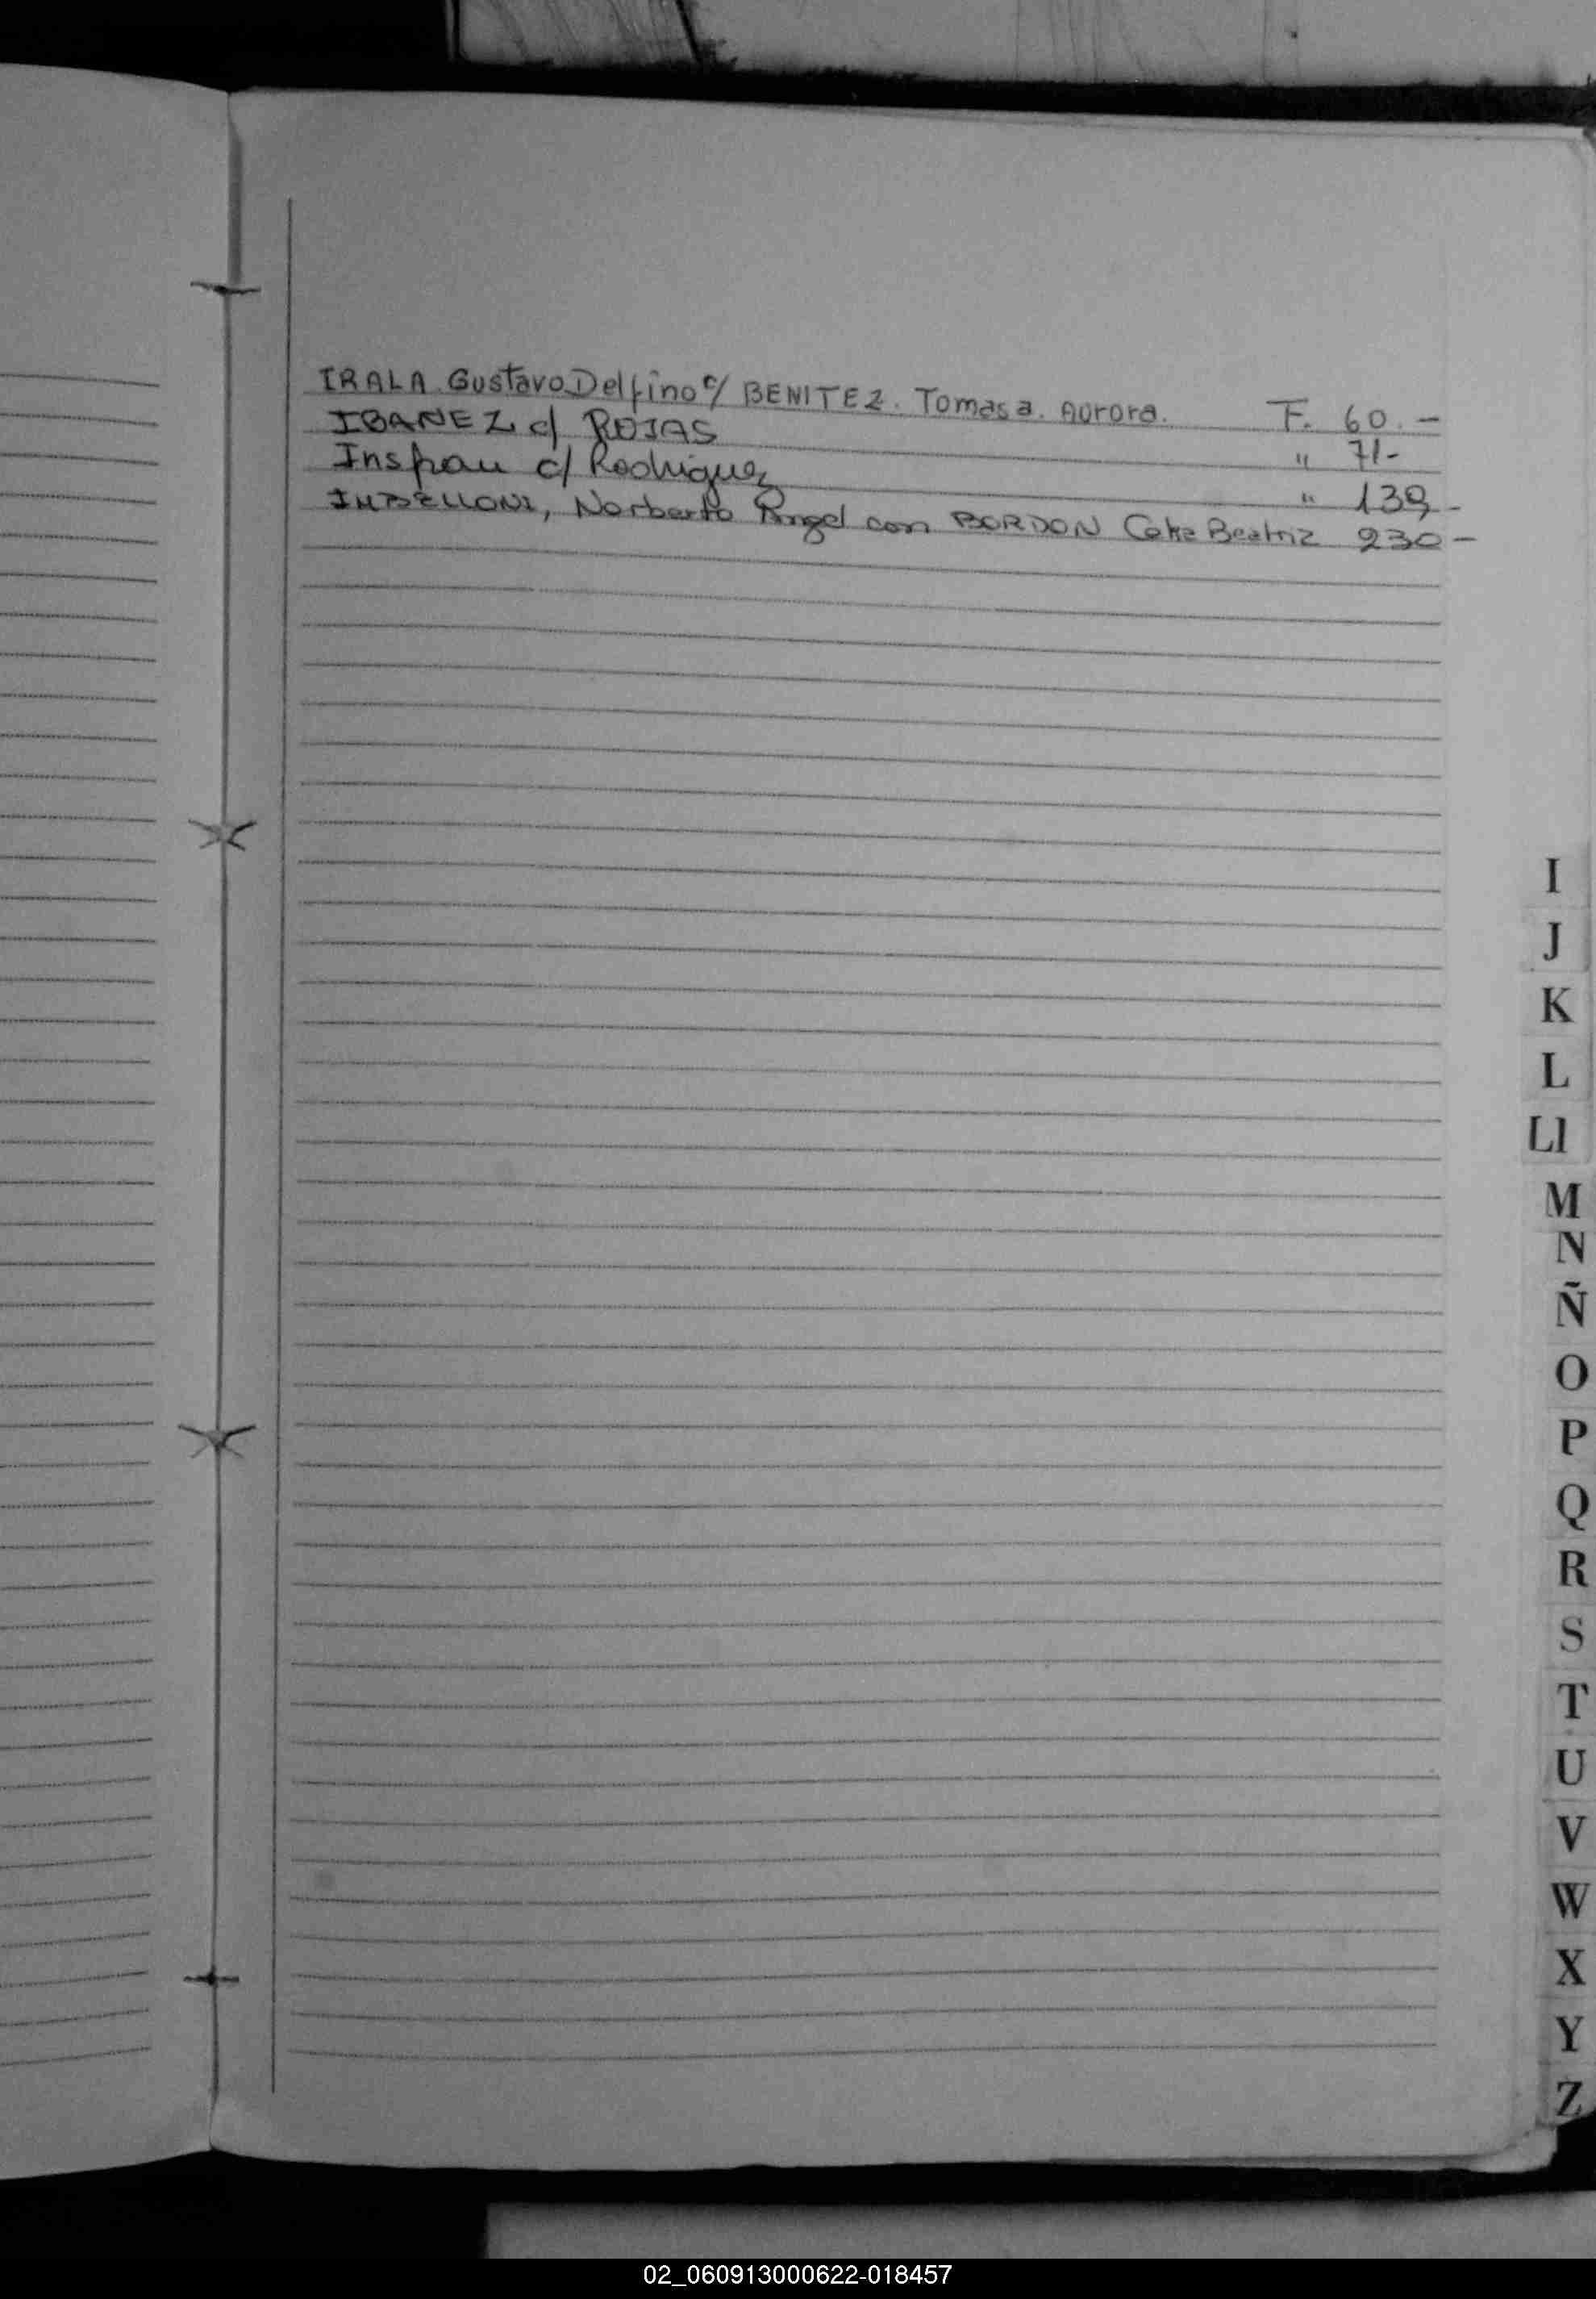 IRALA. Gustavo Delfino c/ BENITEZ. Tomasa. Aurora. F. 60.-
IBAÑEZ c/ ROJAS " 71-
c/ Rodriguez " 139-
IMBELLONI, Norberto Angel con BORDON Beatriz 230-
I
J
K
L
Ll
M
N
Ñ
O
P
Q
R
S
T
U
V
W
X
Y
Z
02_060913000622-018457